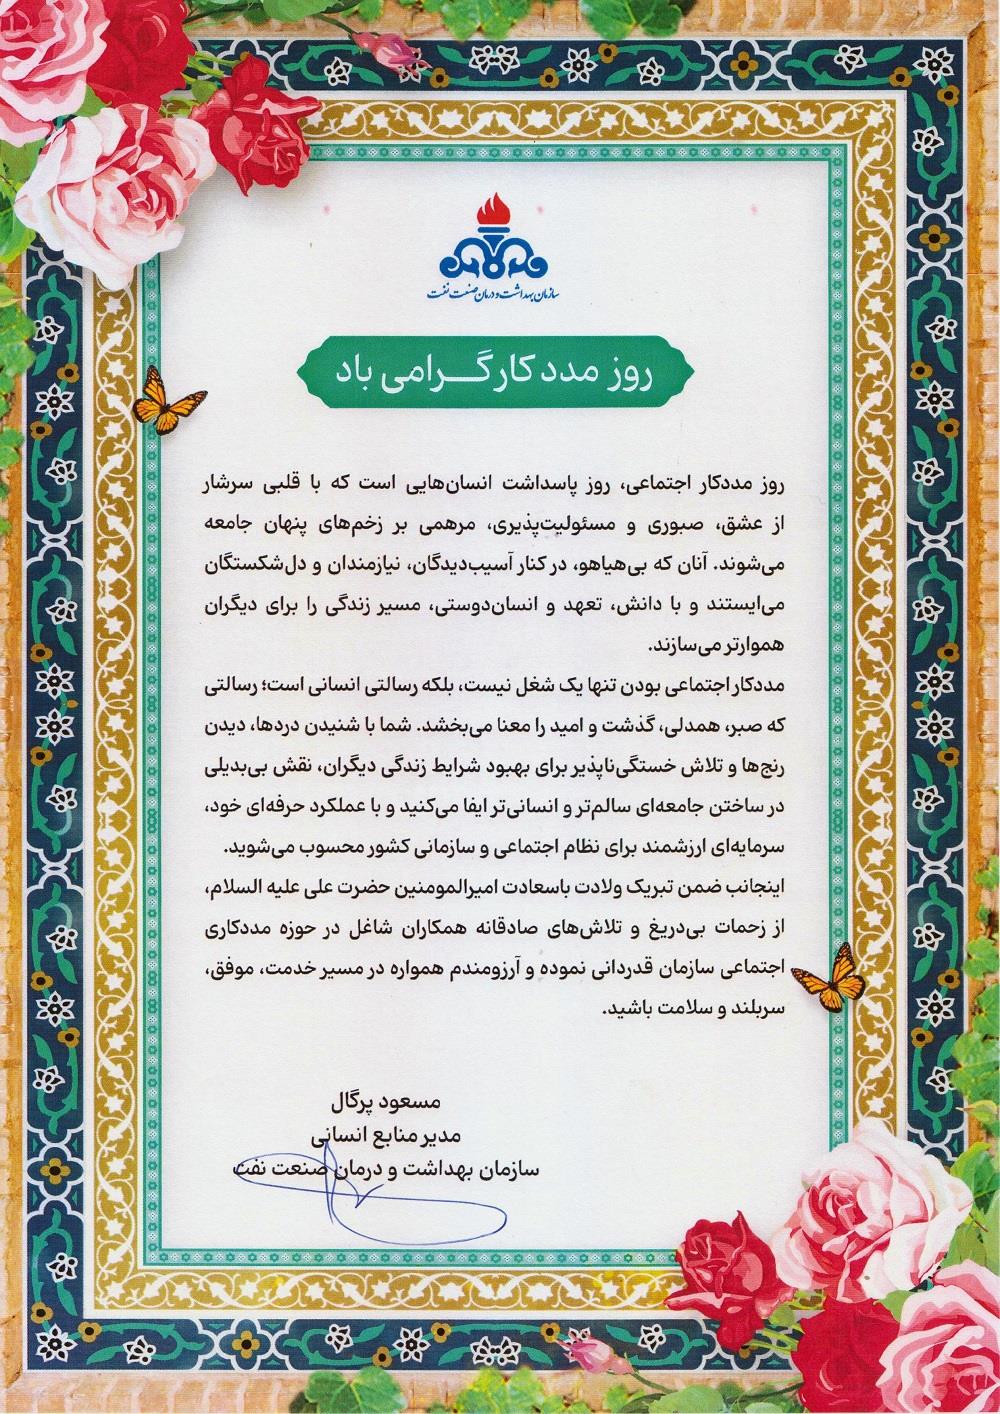 سازمان بهداشت و درمان صنعت نفت
روز مددکار گرامی باد
روز مددکار اجتماعی، روز پاسداشت انسان‌هایی است که با قلبی سرشار
از عشق، صبوری و مسئولیت‌پذیری، مرهمی بر زخم‌های پنهان جامعه
می‌شوند. آنان که بی‌هیاهو، در کنار آسیب‌دیدگان، نیازمندان و دل‌شکستگان
می‌ایستند و با دانش، تعهد و انسان‌دوستی، مسیر زندگی را برای دیگران
هموارتر می‌سازند.
مددکار اجتماعی بودن تنها یک شغل نیست، بلکه رسالتی انسانی است؛ رسالتی
که صبر، همدلی، گذشت و امید را معنا می‌بخشد. شما با شنیدن دردها، دیدن
رنج‌ها و تلاش خستگی‌ناپذیر برای بهبود شرایط زندگی دیگران، نقش بی‌بدیلی
در ساختن جامعه‌ای سالم‌تر و انسانی‌تر ایفا می‌کنید و با عملکرد حرفه‌ای خود،
سرمایه‌ای ارزشمند برای نظام اجتماعی و سازمانی کشور محسوب می‌شوید.
اینجانب ضمن تبریک ولادت باسعادت امیرالمومنین حضرت علی علیه السلام،
از زحمات بی‌دریغ و تلاش‌های صادقانه همکاران شاغل در حوزه مددکاری
اجتماعی سازمان قدردانی نموده و آرزومندم همواره در مسیر خدمت، موفق،
سربلند و سلامت باشید.
مسعود پرگال
مدیر منابع انسانی
سازمان بهداشت و درمان صنعت نفت